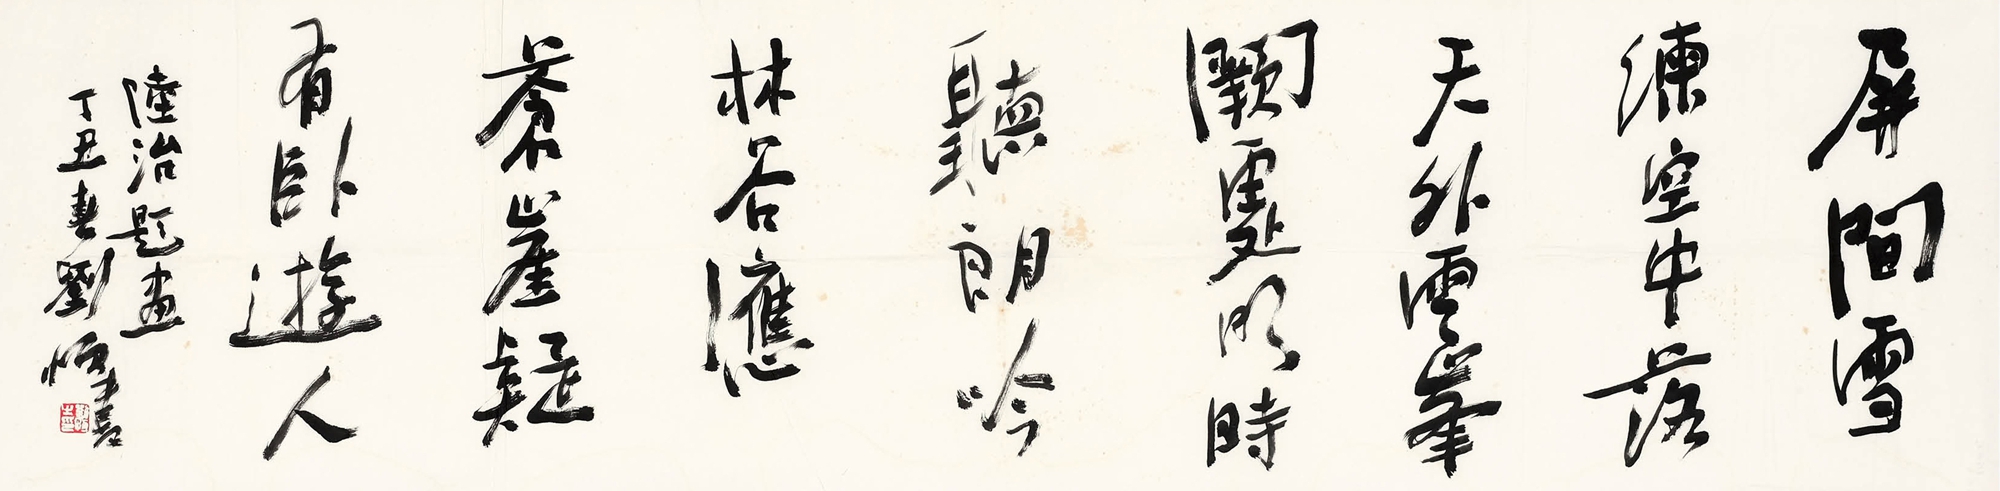 屏間雪
湅空中落
天外雲峯
闕處明時
聽朗吟
林谷應
蒼崖疑
有臥遊人
陸治題畫
丁丑春劉書